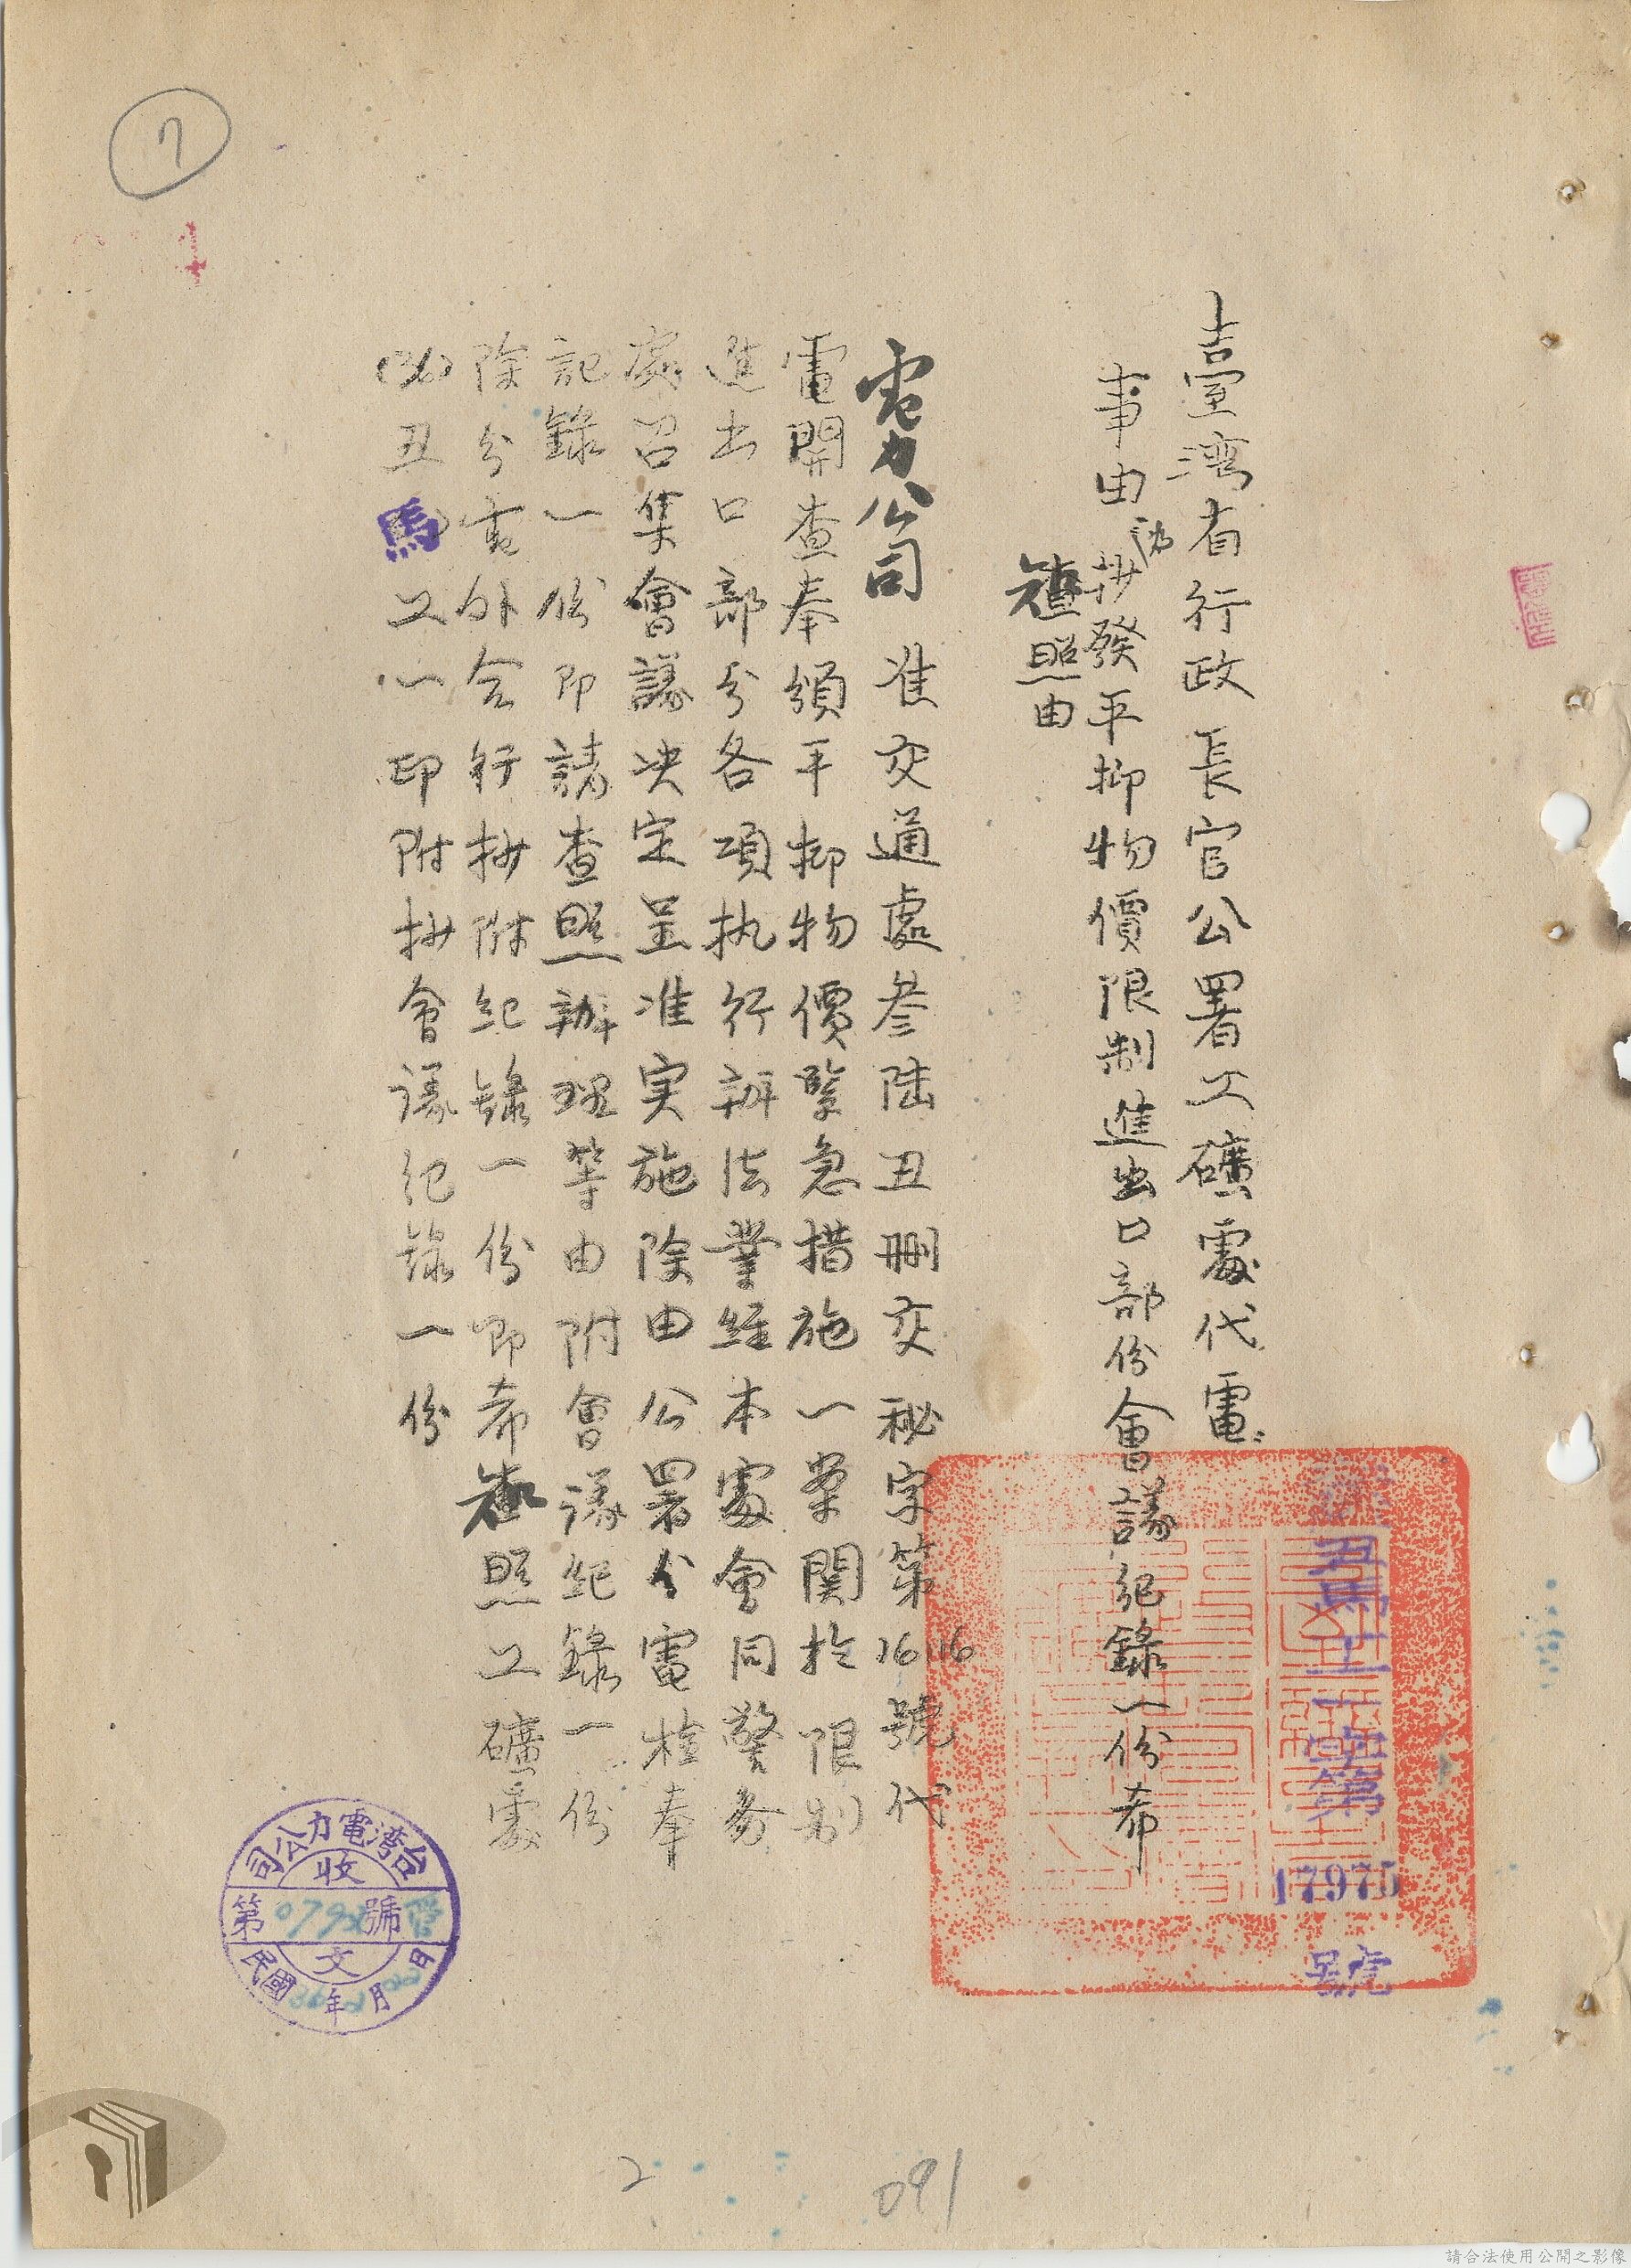 臺湾省行政長官公署工礦處代電
事由 為抄發平抑物價限制進出口部份會議紀錄一份希
查照由
電力公司 准交通處叁陆丑删交秘字第16116號代
電開查奉頒平抑物價緊急措施一案関於限制
進出口部分各項执行辦法業経本處會同警务
處召集會議决定呈准实施除由公署分電檢奉
記錄一份即請查照辦理等由附會議紀錄一份
除分電外合行抄附紀錄一份即希查照工礦處
(36)丑馬工一印附抄會議紀錄一份
丑馬工一 字第
17975
號
台湾電力公司
收
第 號
文
民國 年 月 日
7
4
2
091
請合法使用公開之影像